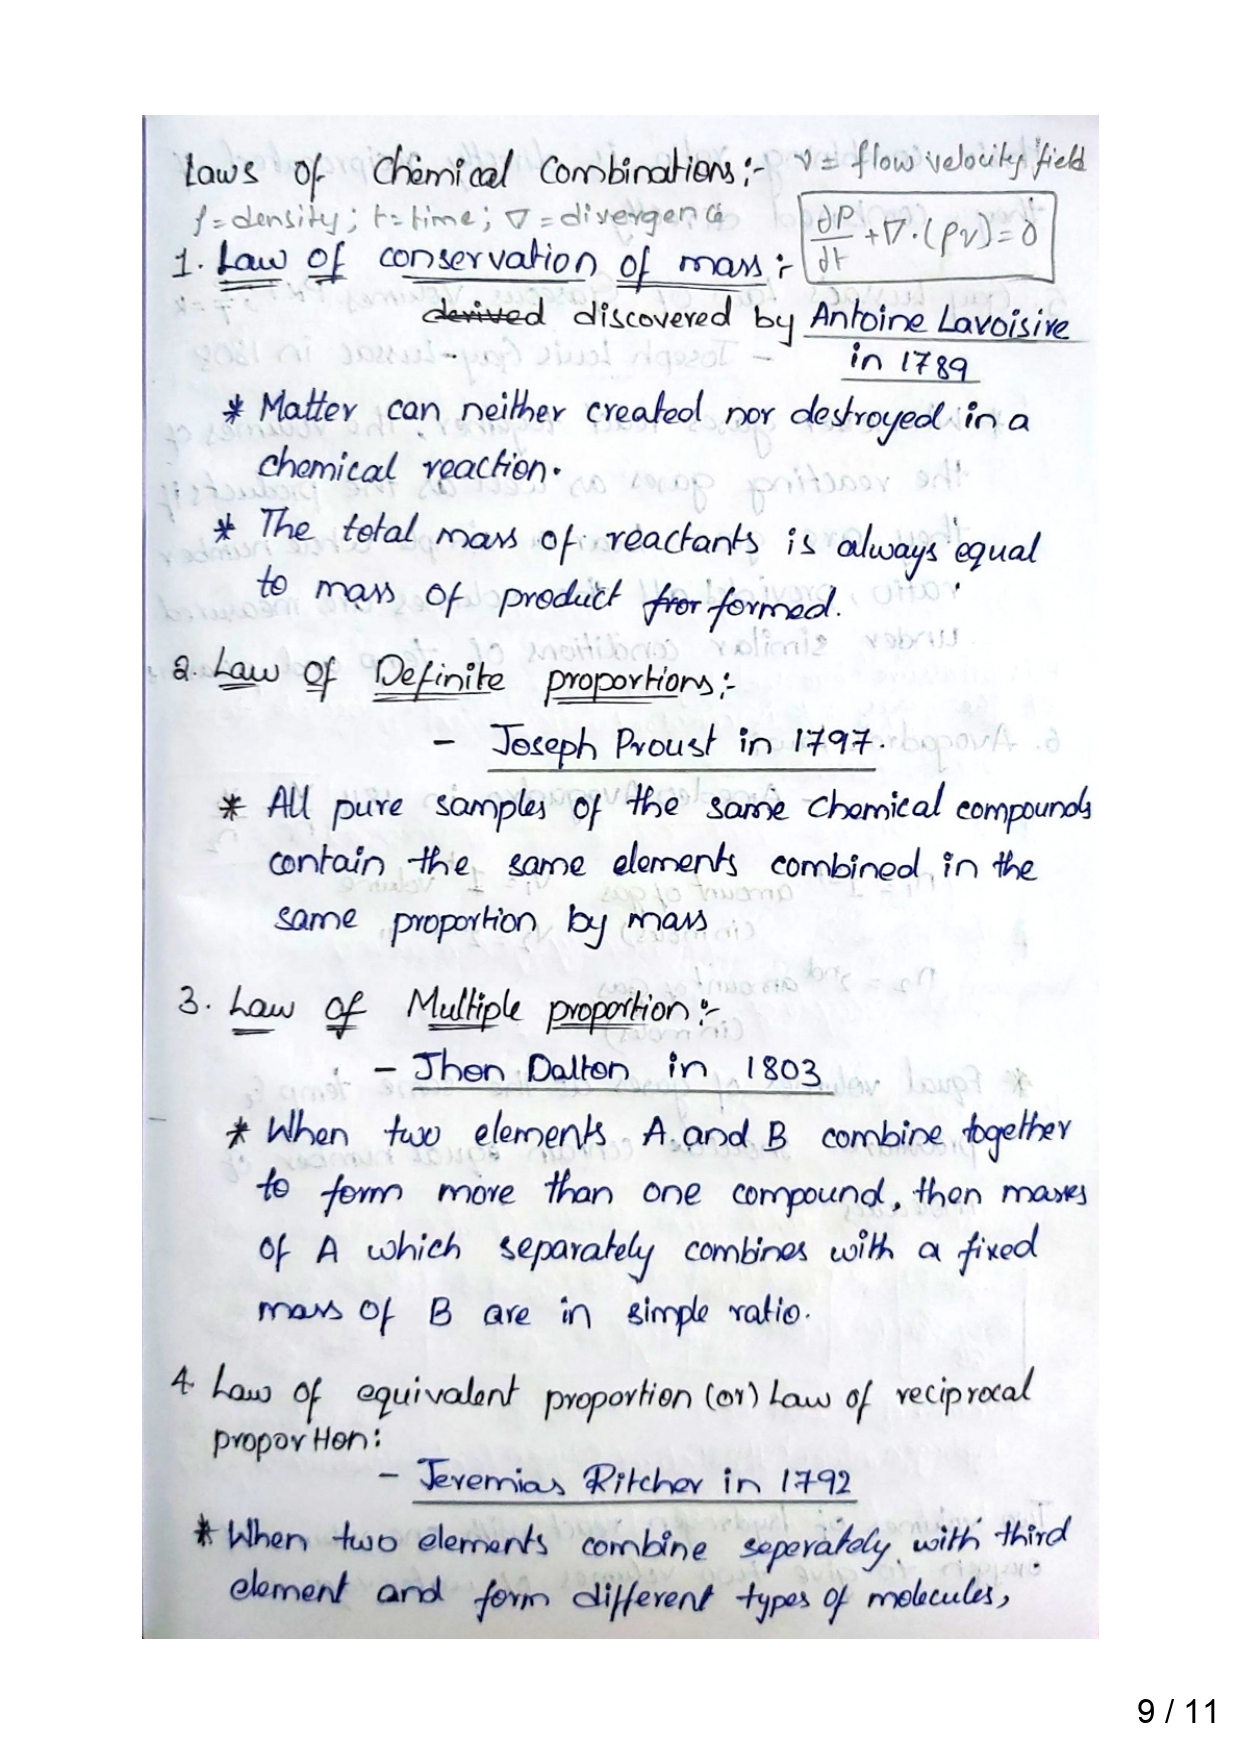 Laws of Chemical Combinations:- v = flow velocity field
ρ = density; t = time; ∇ = divergence
∂ρ/∂t + ∇·(ρv) = 0
1. Law of conservation of mass:-
derived discovered by Antoine Lavoisire
in 1789
* Matter can neither created nor destroyed in a
chemical reaction.
* The total mass of reactants is always equal
to mass of product fror formed.
2. Law of Definite proportions:-
- Joseph Proust in 1797.
* All pure samples of the same chemical compounds
contain the same elements combined in the
same proportion by mass
3. Law of Multiple proportion:-
- Jhon Dalton in 1803
* When two elements A and B combine together
to form more than one compound, then masses
of A which separately combines with a fixed
mass of B are in simple ratio.
4. Law of equivalent proportion (or) Law of reciprocal
proportion:
- Jeremias Ritcher in 1792
* When two elements combine seperately with third
element and form different types of molecules,
9 / 11